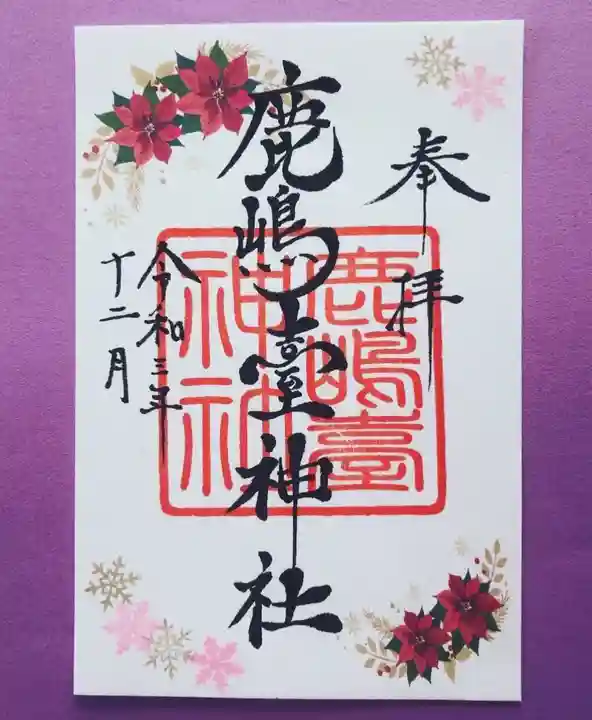 奉拝
鹿嶋臺神社
令和三年
十二月
鹿嶋臺
神社